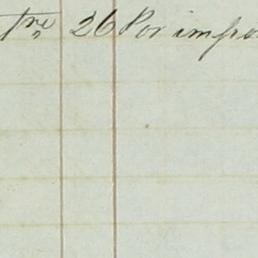 tre 26 Por impo